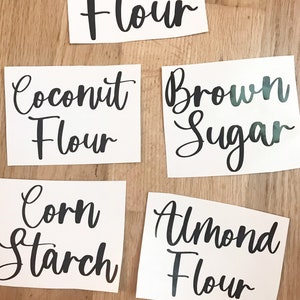 Flour
Coconut
Flour
Brown
Sugar
Corn
Starch
Almond
Flour